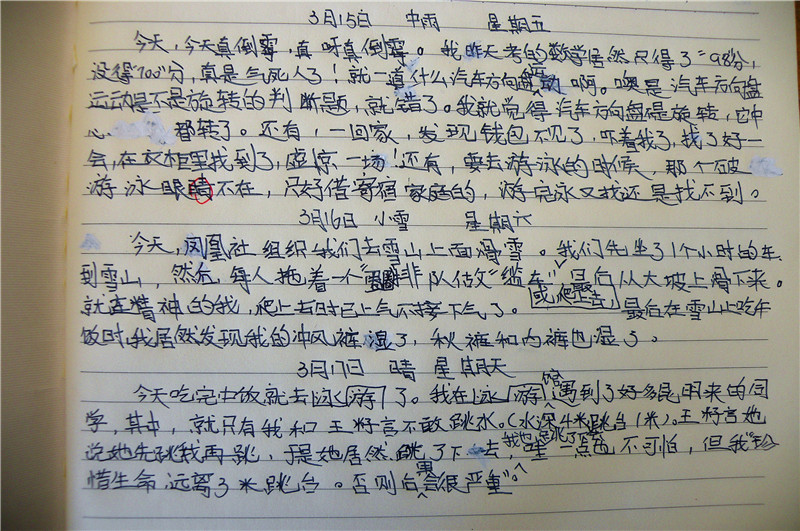 3月15日 中雨 星期五
今天,今天真倒霉,真呀真倒霉。我昨天考的数学居然只得了"98分,
没得"100"分,真是气死人了!就一道什么汽车方向盘 啊。噢是汽车方向盘
运动是不是旋转的判断题,就错了。我就觉得汽车方向盘是旋转,它中
心 都转了。还有,一回家,发现钱包不见了,吓着我了,找了好一
会,在衣柜里找到了,虚惊一场!还有,要去游泳的时候,那个破
游泳眼睛不在,只好借寄宿家庭的,游完泳又找还是找不到。
3月16日 小雪 星期六
今天,凤凰社组织我们去雪山上面滑雪。我们先坐了1个小时的车
到雪山,然后,每人拖着一个 非队做"缆车"或(爬上去)最后从大坡上滑下来。
就连精神的我,爬上去时已上气不接下气了。最后在雪山上吃午
饭时,我居然发现我的冲风裤湿了,秋裤和内裤也湿了。
3月17日 晴 星期天
今天吃完中饭就去泳游了。我在泳游馆遇到了好多昆明来的同
学,其中,就只有我和王籽言不敢跳水。(水深4米跳台1米)。王籽言她
说她先跳我再跳,于是她居然跳了下去,我也跳了 一点也不可怕,但我"珍
惜生命,远离3米跳台。否则后果会很严重"。